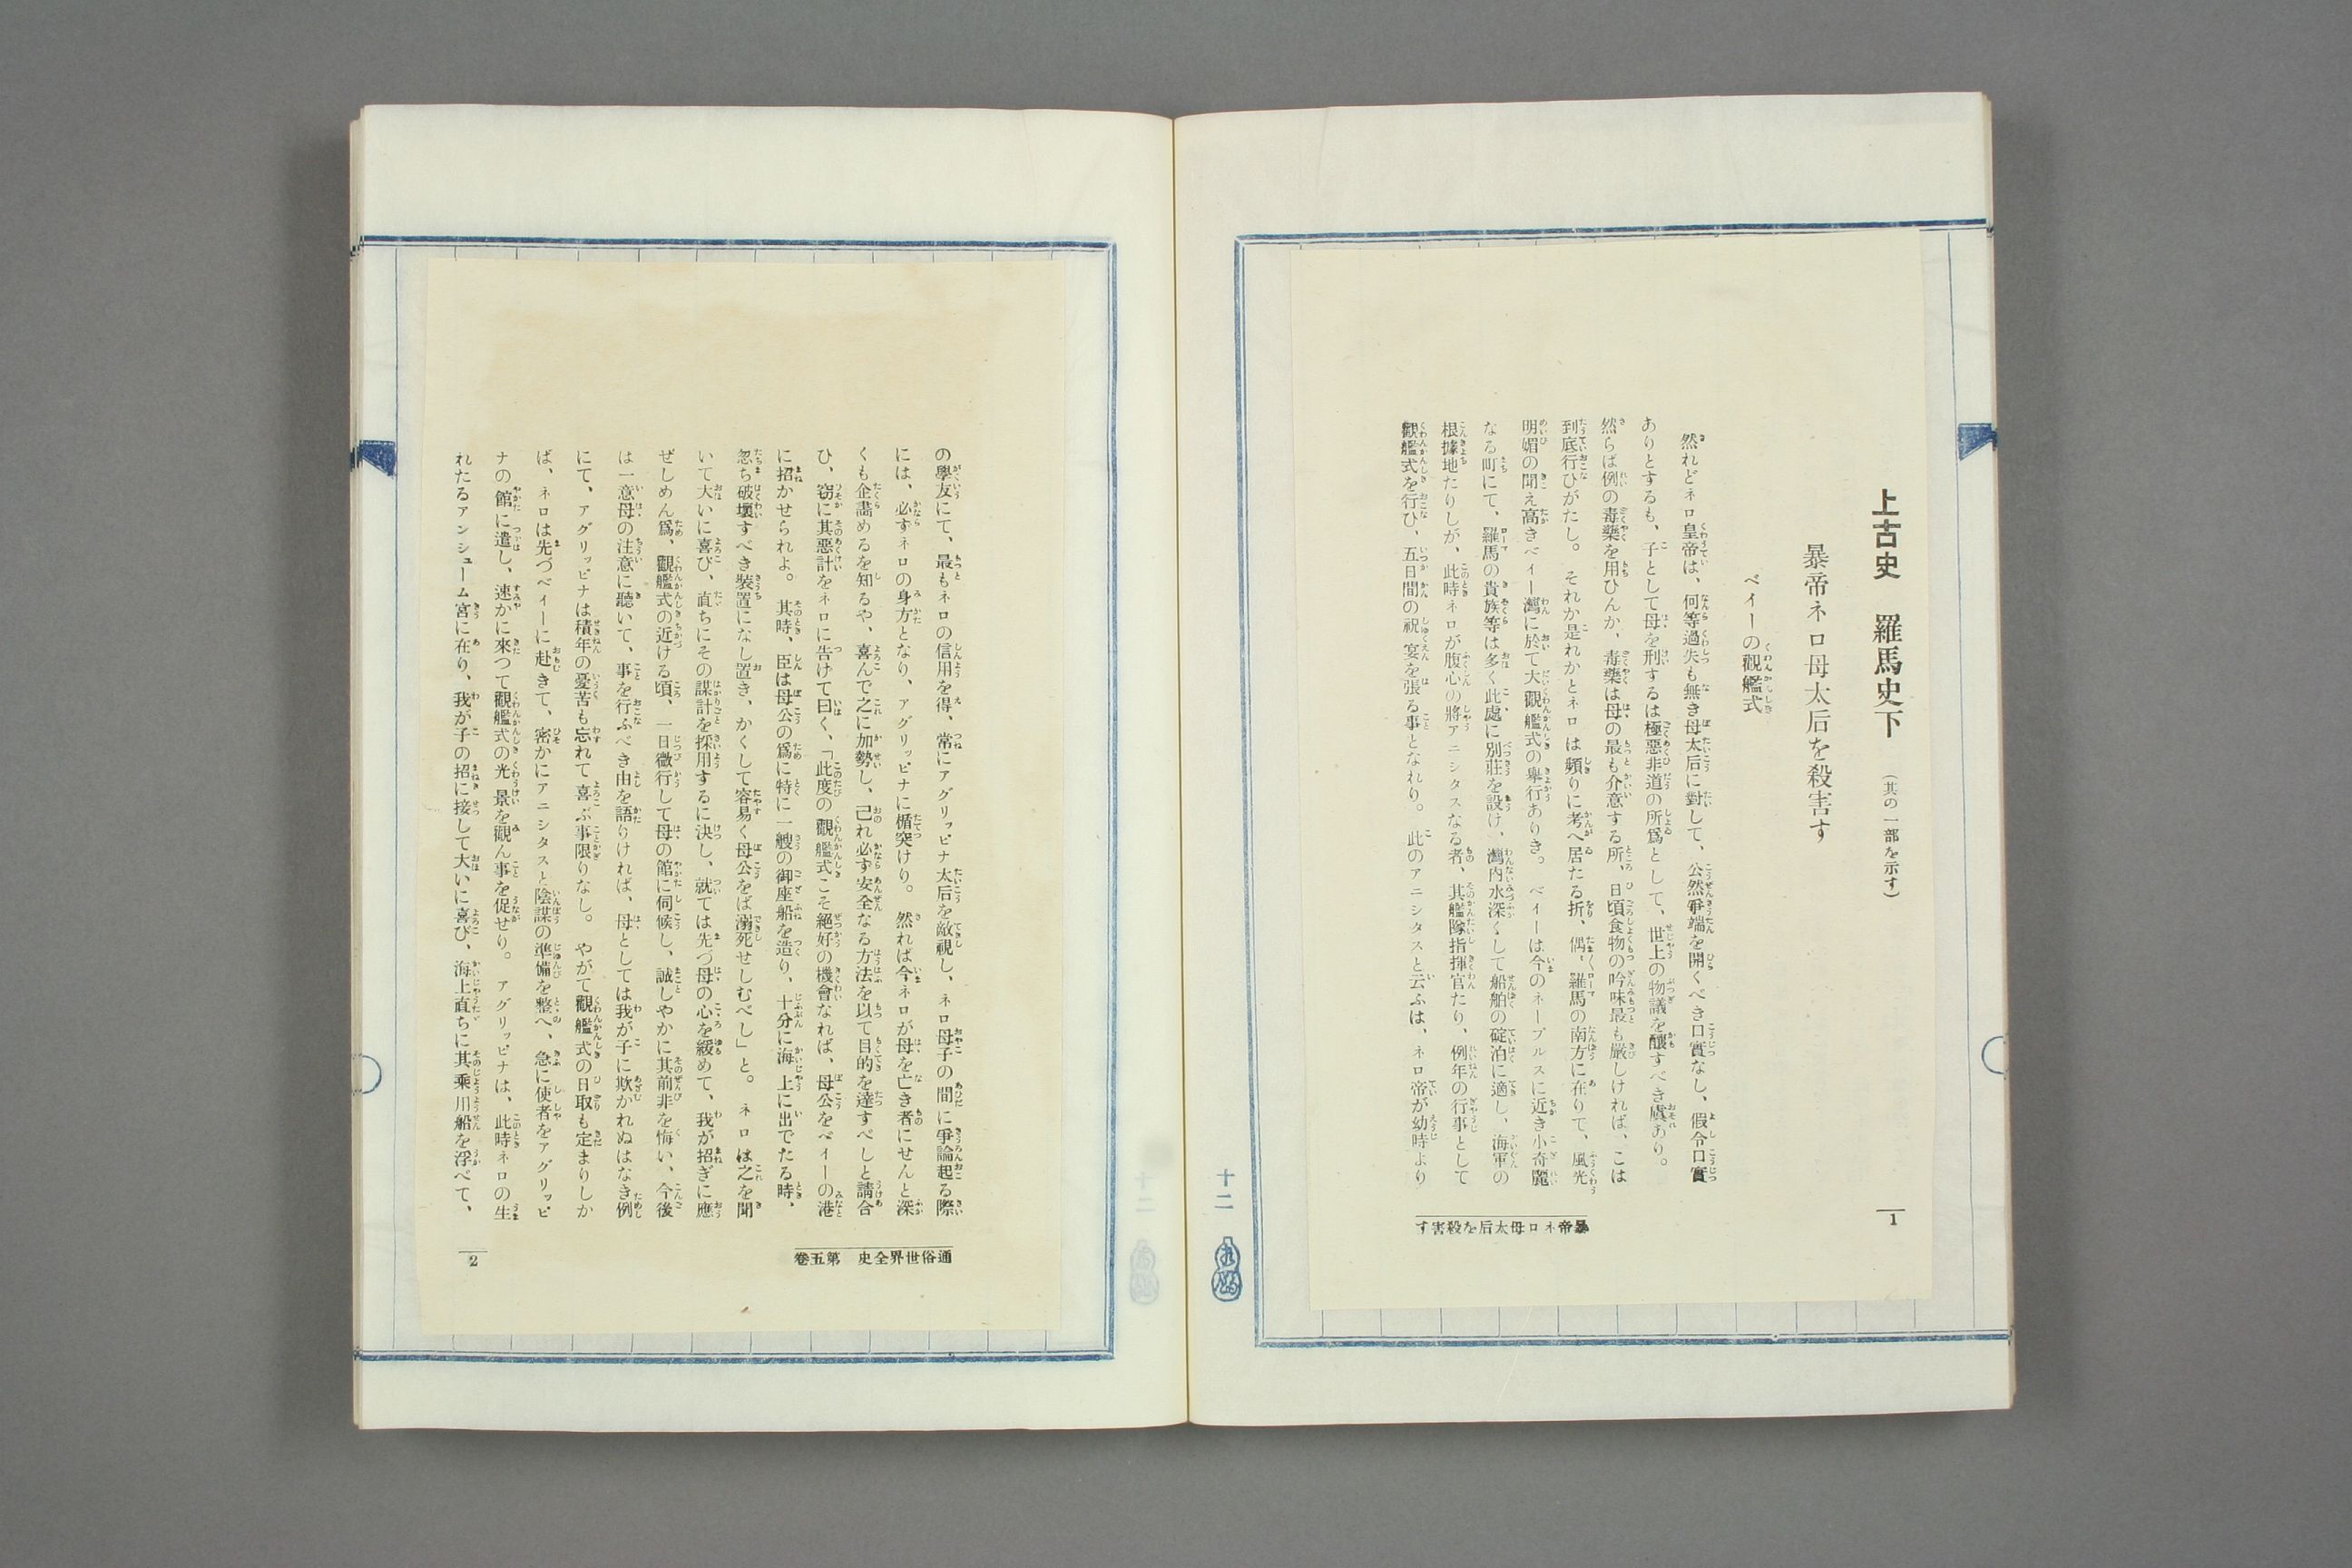 上古史　羅馬史下　（其の一部を示す）
暴帝ネロ母太后を殺害す
ベイーの觀艦式
然れどネロ皇帝は、何等過失も無き母太后に對して、公然爭端を開くべき口實なし、假令口實
ありとするも、子として母を刑するは極惡非道の所爲として、世上の物議を釀すべき虞あり。
然らば例の毒藥を用ひんか、毒藥は母の最も介意する所、日頃食物の吟味最も嚴しければ、こは
到底行ひがたし。それか是れかとネロは頻りに考へ居たる折、偶〻羅馬の南方に在りて、風光
明媚の聞え高きベイー灣に於て大觀艦式の擧行ありき。ベイーは今のネープルスに近き小奇麗
なる町にて、羅馬の貴族等は多く此處に別莊を設け、灣內水深くして船舶の碇泊に適し、海軍の
根據地たりしが、此時ネロが腹心の將アニシタスなる者、其艦隊指揮官たり、例年の行事として
觀艦式を行ひ、五日間の祝宴を張る事となれり。此のアニシタスと云ふは、ネロ帝が幼時より
暴帝ネロ母太后を殺害す
1
十二
の學友にて、最もネロの信用を得、常にアグリッピナ太后を敵視し、ネロ母子の間に爭論起る際
には、必ずネロの身方となり、アグリッピナに楯突けり。然れば今ネロが母を亡き者にせんと深
くも企謀めるを知るや、喜んで之に加勢し、己れ必ず安全なる方法を以て目的を達すべしと請合
ひ、窃に其惡計をネロに告けて曰く、「此度の觀艦式こそ絕好の機會なれば、母公をベイーの港
に招かせられよ。其時、臣は母公の爲に特に一艘の御座船を造り、十分に海上に出でたる時、
忽ち破壞すべき裝置になし置き、かくして容易く母公をば溺死せしむべし」と。ネロは之を聞
いて大いに喜び、直ちにその謀計を採用するに決し、就ては先づ母の心を緩めて、我が招ぎに應
ぜしめん爲、觀艦式の近ける頃、一日微行して母の館に伺候し、誠しやかに其前非を悔い、今後
は一意母の注意に聽いて、事を行ふべき由を語りければ、母としては我が子に欺かれぬはなき例
にて、アグリッピナは積年の憂苦も忘れて喜ぶ事限りなし。やがて觀艦式の日取も定まりしか
ば、ネロは先づベイーに赴きて、密かにアニシタスと陰謀の準備を整へ、急に使者をアグリッピ
ナの館に遣し、速かに來つて觀艦式の光景を觀ん事を促せり。アグリッピナは、此時ネロの生
れたるアンシューム宮に在り、我が子の招に接して大いに喜び、海上直ちに其乘用船を浮べて、
通俗世界全史　第五卷
2